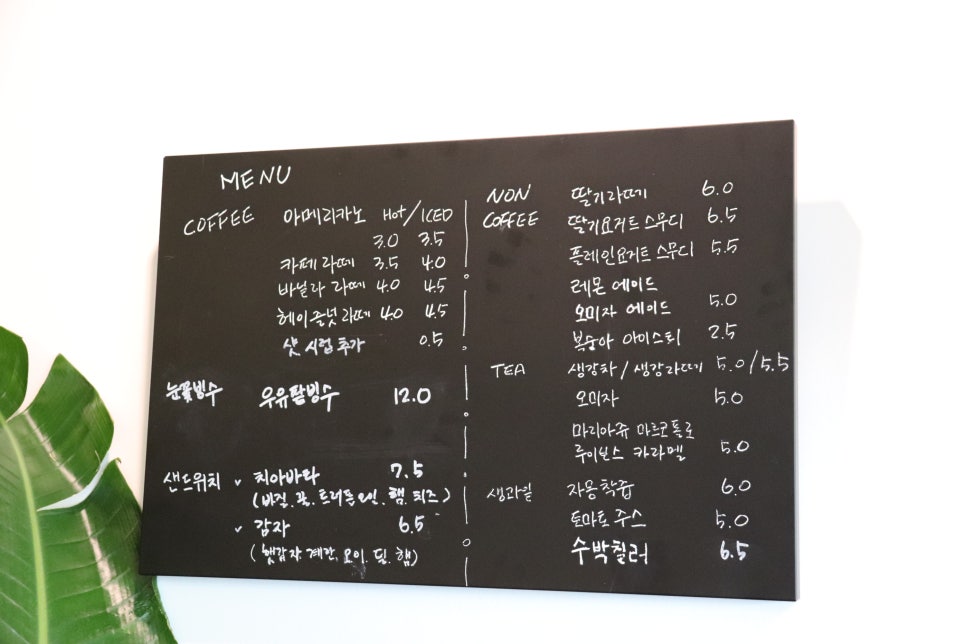 MENU
COFFEE 아메리카노 Hot/ICED
3.0 3.5
카페라떼 3.5 4.0
바닐라 라떼 4.0 4.5
헤이즐넛라떼 4.0 4.5
샷 시럽 추가 0.5
눈꽃빙수 우유팥빙수 12.0
샌드위치 ✓ 치아바타 7.5
(바질. 꿀. 햄. 치즈)
✓ 감자 6.5
(햇감자, 계란, 오이, 딜, 햄)
NON COFFEE
딸기라떼 6.0
딸기요거트 스무디 6.5
플레인요거트 스무디 5.5
레몬 에이드
오미자 에이드 5.0
복숭아 아이스티 2.5
TEA 생강차/생강라떼 5.0/5.5
오미자 5.0
마리아쥬 마르코폴로
루이보스 카라멜 5.0
생과일 자몽착즙 6.0
토마토 주스 5.0
수박칠러 6.5